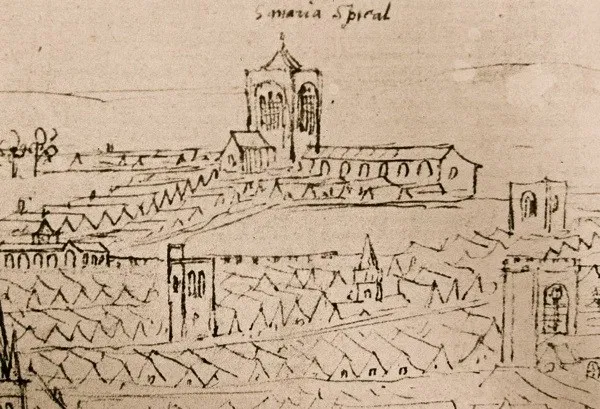 S maria Spital